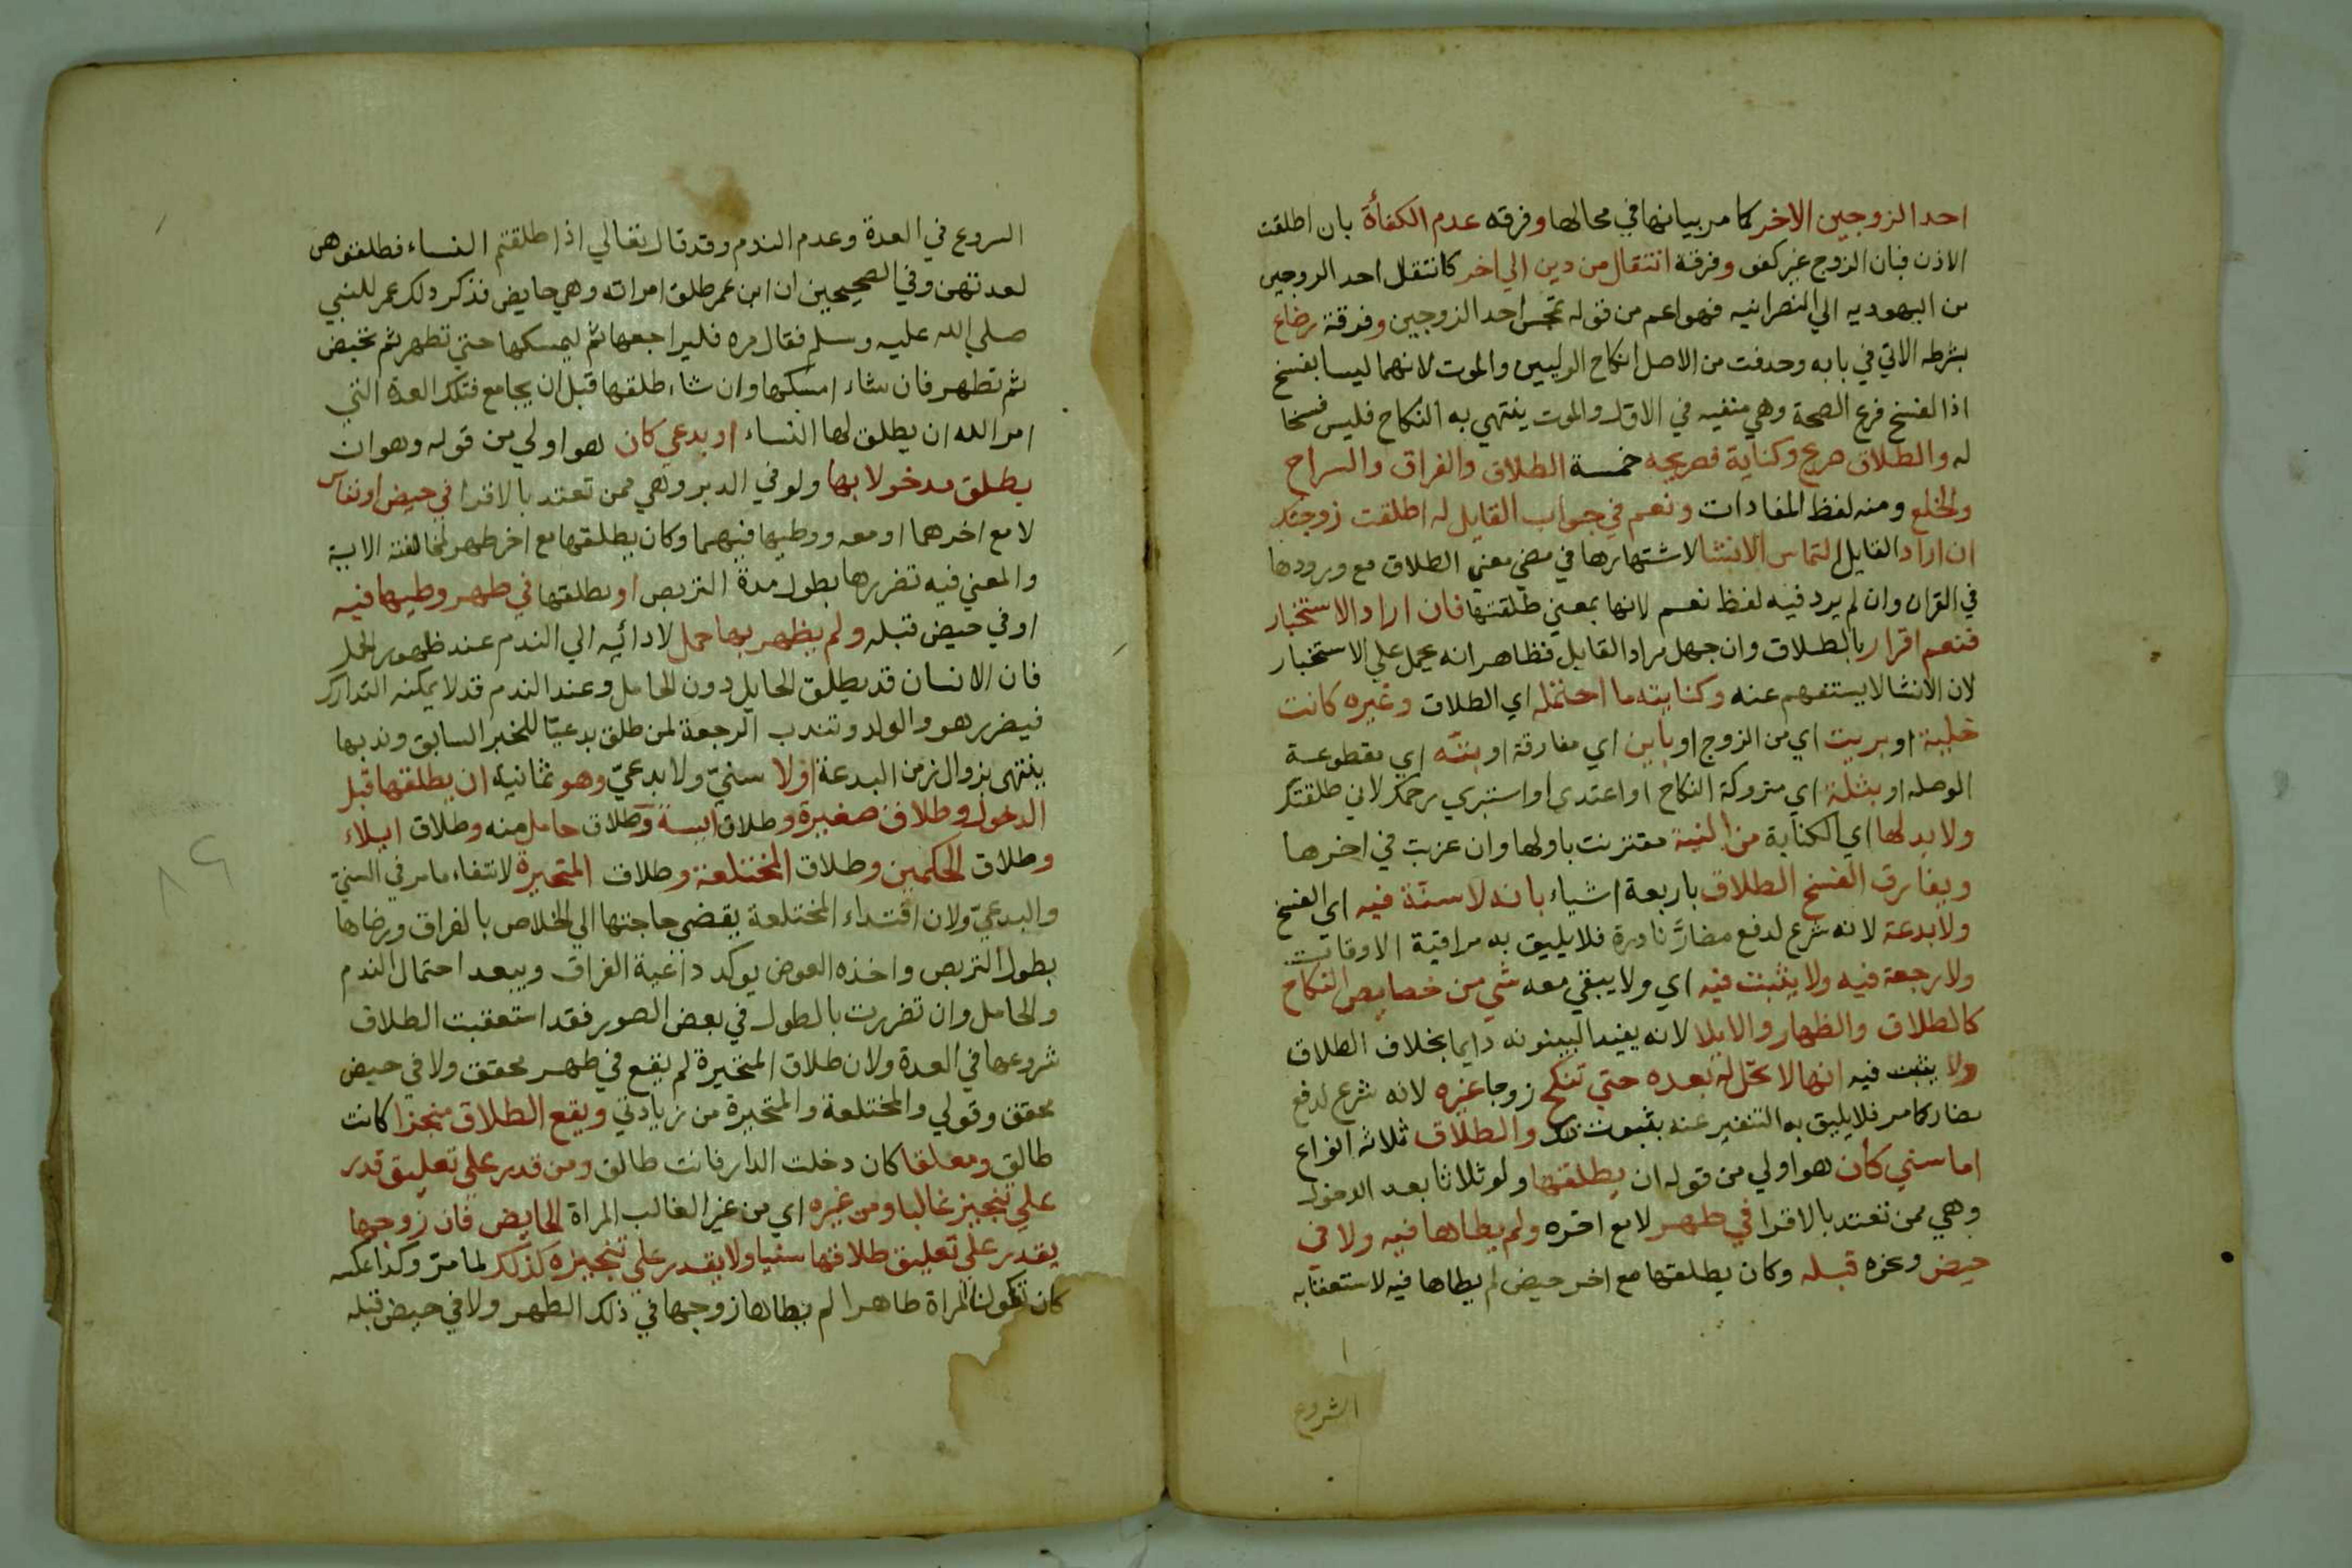 احد الزوجين الاخر كما مر بيانها في محالها وفرقه عدم الكفأة بان اطلقت
الاذن فبان الزوج غير كفو وفرقة انتقال من دين الي اخر كانتقال احد الزوجين
من اليهوديه الي النصرانيه فهو اعم من قوله تمجس احد الزوجين وفرقة رضاع
بشرطه الاتي في بابه وحذفت من الاصل انكاح الوليين والموت لانهما ليسا بفسخ
اذ الفسخ فرع الصحة وهي منفيه في الاول والموت ينتهي به النكاح فليس فسخا
له والطلاق صريح وكناية فصريحه خمسة الطلاق والفراق والسراح
والخلع ومنه لفظ المفادات ونعم في جواب القايل له اطلقت زوجتك
ان اراد القايل التماس الانشا لاشتهارها في مضي معني الطلاق مع ورودها
في القران وان لم يرد فيه لفظ نعم لانها بمعني طلقتها فان اراد الاستخبار
فنعم اقرار بالطلاق وان جهل مراد القايل فظاهر انه يحمل علي الاستخبار
لان الانشا لا يستفهم عنه وكنايته ما احتمله اي الطلاق وغيره كانت
خلية او بريت اي من الزوج او باين اي مفارقة او بتّه اي مقطوعة
الوصله او بتلة اي متروكة النكاح او اعتدي او استبري رحمك لاني طلقتك
ولا بد لها اي الكناية من النية مقترنت باولها وان عزبت في اخرها
ويفارق الفسخ الطلاق باربعة اشياء بانه لا سنّة فيه اي الفسخ
ولا بدعة لانه شرع لدفع مضارّ نادرة فلا يليق به مراقبة الاوقات
ولا رجعة فيه ولا يثبت فيه اي ولا يبقي معه شي من خصايص النكاح
كالطلاق والظهار والايلا لانه يفيد البينونه دايما بخلاف الطلاق
ولا يثبت فيه انها لا تحل له بعده حتي تنكح زوجا غيره لانه شرع لدفع
مضار كما مر فلا يليق به التنفير عنه بثبوت ذلك والطلاق ثلاثه انواع
اما سني كأن هو اولي من قوله ان يطلقها ولو ثلاثا بعد الدخول
وهي ممن تعتد بالاقرا في طهر لا مع اخره ولم يطاها فيه ولا في
حيض ونحوه قبله وكان يطلقها مع اخر حيض لم يطاها فيه لاستعقابه
الشروع
الشروع في العدة وعدم الندم وقد قال تعالي اذا طلقتم النساء فطلقوهن
لعدتهن وفي الصحيحين ان ابن عمر طلق امراته وهي حايض فذكر ذلك عمر للنبي
صلي الله عليه وسلم فقال مره فليراجعها ثم ليمسكها حتي تطهر ثم تحيض
ثم تطهر فان شاء امسكها وان شاء طلقها قبل ان يجامع فتلك العدة التي
امر الله ان يطلق لها النساء او بدعي كان هو اولي من قوله وهو ان
يطلق مدخولا بها ولو في الدبر وهي ممن تعتد بالاقرا في حيض او نفاس
لا مع اخرهما او معه ووطيها فيهما وكان يطلقها مع اخر طهر لمخالفته الاية
والمعني فيه تضررها بطول مدة التربص او يطلقها في طهر وطيها فيه
او في حيض قبله ولم يظهر بها حمل لادائه الي الندم عند ظهور الحمل
فان الانسان قد يطلق الحايل دون الحامل وعند الندم قد لا يمكنه التدارك
فيضرر هو والولد وتندب الرجعة لمن طلق بدعيّا للخبر السابق وندبها
ينتهي بزوال زمن البدعة او لا سنيّ ولا بدعيّ وهو ثمانية ان يطلقها قبل
الدخول وطلاق صغيرة وطلاق ايسة وطلاق حامل منه وطلاق ايلاء
وطلاق الحكمين وطلاق المختلعة وطلاق المتحيرة لانتفاء ما مر في السني
والبدعيّ ولان افتداء المختلعة يقضي حاجتها الي الخلاص بالفراق ورضاها
بطول التربص واخذه العوض يوكد داعية الفراق ويبعد احتمال الندم
والحامل وان تضررت بالطول في بعض الصور فقد استعقبت الطلاق
شروعها في العدة ولان طلاق المتحيرة لم يقع في طهر محقق ولا في حيض
محقق وقولي والمختلعة والمتحيرة من زيادتي ويقع الطلاق منجزا كانت
طالق ومعلقا كان دخلت الدار فانت طالق ومن قدر علي تعليق قدر
علي تنجيز غالبا ومن غيره اي من غير الغالب المراة الحايض فان زوجها
يقدر علي تعليق طلاقها سنيا ولا يقدر علي تنجيزه كذلك لما مرّ وكذا عكسه
كان تكون المراة طاهرا لم يطاها زوجها في ذلك الطهر ولا في حيض قبله